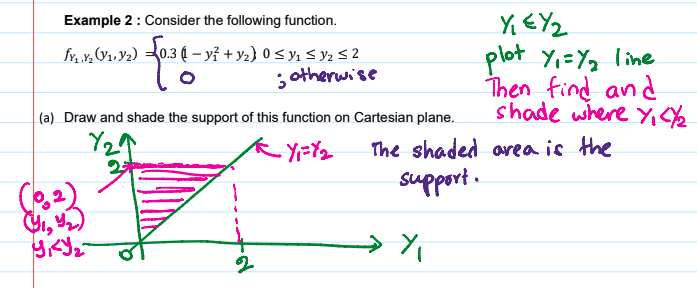 Example 2 : Consider the following function.
Y₁ ≤ Y₂
f_{Y₁,Y₂}(y₁, y₂) = { 0.3 (1 − y₁² + y₂) 0 ≤ y₁ ≤ y₂ ≤ 2
0 ; otherwise
plot Y₁=Y₂ line
Then find and
shade where Y₁<Y₂
(a) Draw and shade the support of this function on Cartesian plane.
Y₂
2
Y₁=Y₂
The shaded area is the
support.
(0,2)
(y₁, y₂)
y₁<y₂
0
2
Y₁